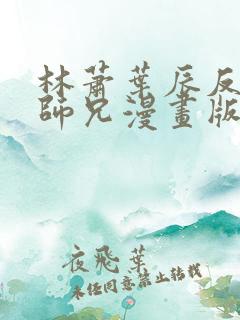 林蕭葉辰反
師兄漫畫版
夜飛葉
未經同意禁止轉載